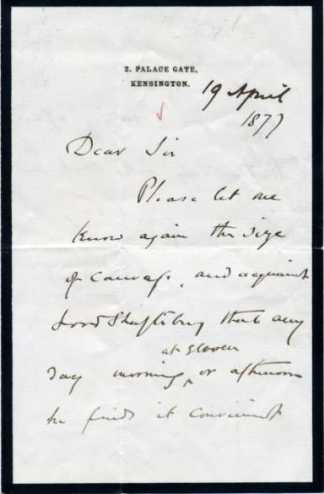 2. PALACE GATE,
KENSINGTON.
19 April
1877
Dear Sir
Please let me
know again the size
of canvas, and acquaint
Lord Shaftesbury that any
at eleven
day morning, or afternoon
he finds it convenient